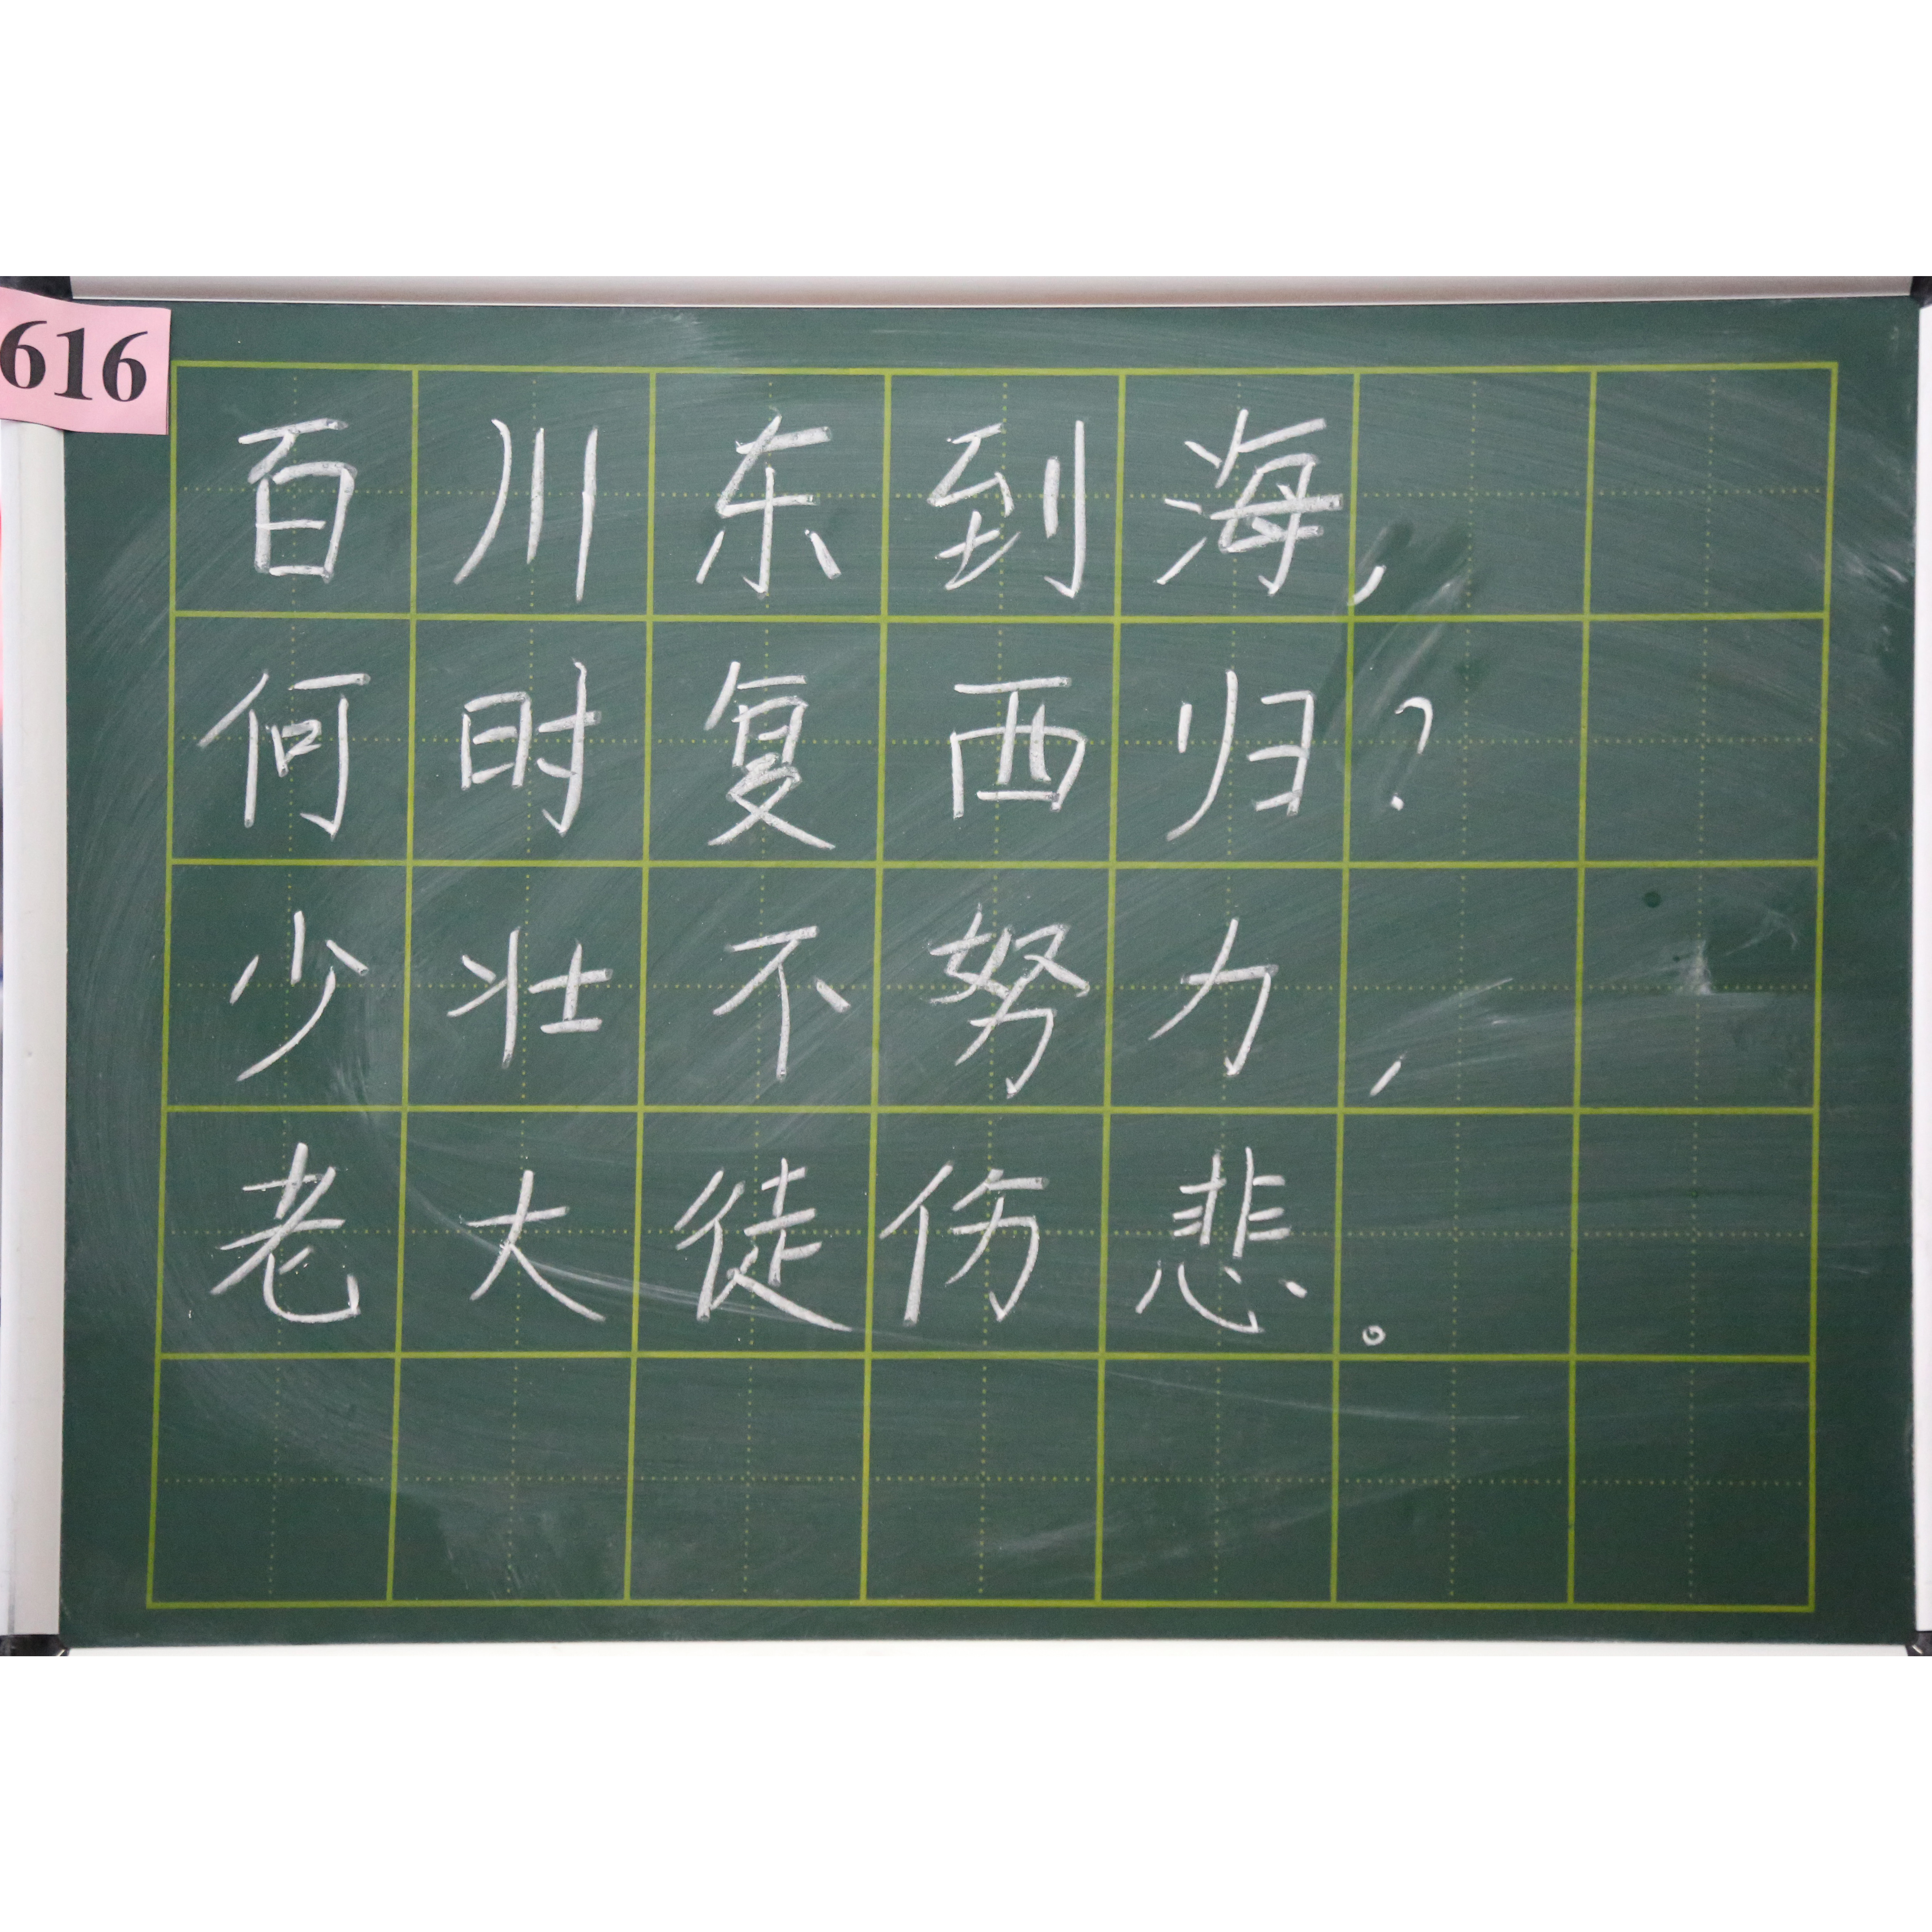 616
百川东到海，
何时复西归？
少壮不努力，
老大徒伤悲。